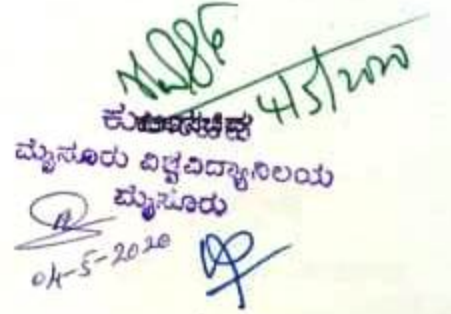 4/5/2020
ಕುಲಸಚಿವ
ಮೈಸೂರು ವಿಶ್ವವಿದ್ಯಾನಿಲಯ
ಮೈಸೂರು
04-5-2020